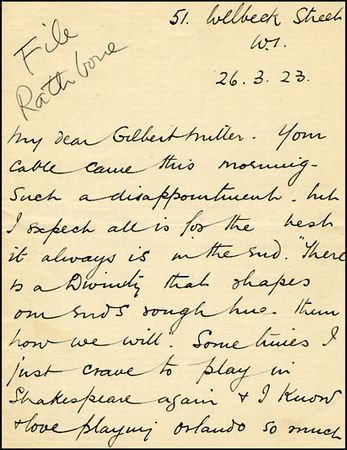 File
Rathbone
51. Welbeck Street
W.1.
26.3.23.
My dear Gilbert Miller. Your
cable came this morning -
such a disappointment - but
I expect all is for the best
it always is in the end. "There
is a Divinity that shapes
our ends rough hue - them
how we will". Sometimes I
just crave to play in
Shakespeare again & I know
& love playing Orlando so much